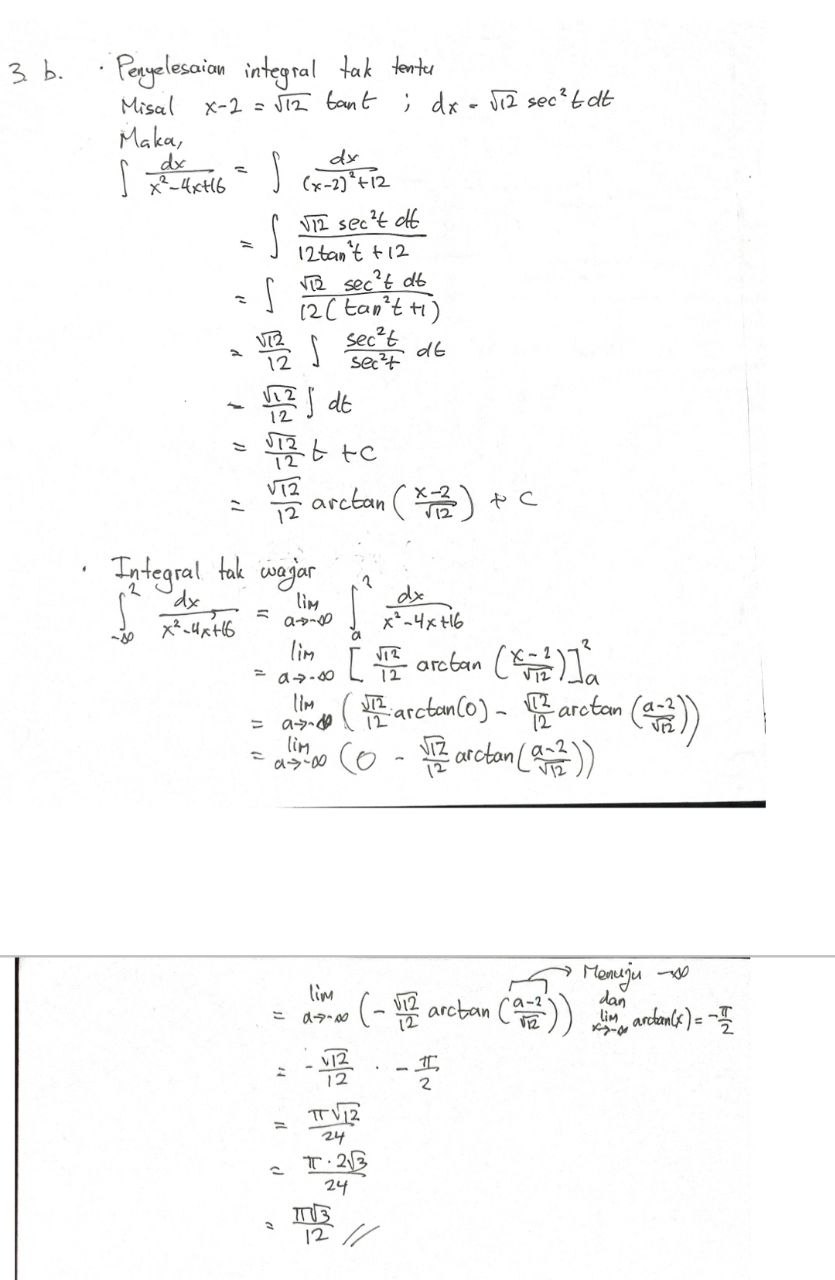 3 b. · Penyelesaian integral tak tentu
Misal x-2 = √12 tan t ; dx = √12 sec²t dt
Maka,
∫ dx/(x²-4x+16) = ∫ dx/((x-2)²+12)
= ∫ (√12 sec²t dt)/(12tan²t + 12)
= ∫ (√12 sec²t dt)/(12(tan²t+1))
= √12/12 ∫ sec²t/sec²t dt
= √12/12 ∫ dt
= √12/12 t + C
= √12/12 arctan((x-2)/√12) + C
· Integral tak wajar
∫_{-∞}^{2} dx/(x²-4x+16) = lim_{a→-∞} ∫_{a}^{2} dx/(x²-4x+16)
= lim_{a→-∞} [√12/12 arctan((x-2)/√12)]_{a}^{2}
= lim_{a→-∞} (√12/12 · arctan(0) - √12/12 arctan((a-2)/√12))
= lim_{a→-∞} (0 - √12/12 arctan((a-2)/√12))
= lim_{a→-∞} (-√12/12 arctan((a-2)/√12)) → Menuju -∞
dan
lim_{x→-∞} arctan(x) = -π/2
= -√12/12 · -π/2
= π√12/24
= π·2√3/24
= π√3/12 //